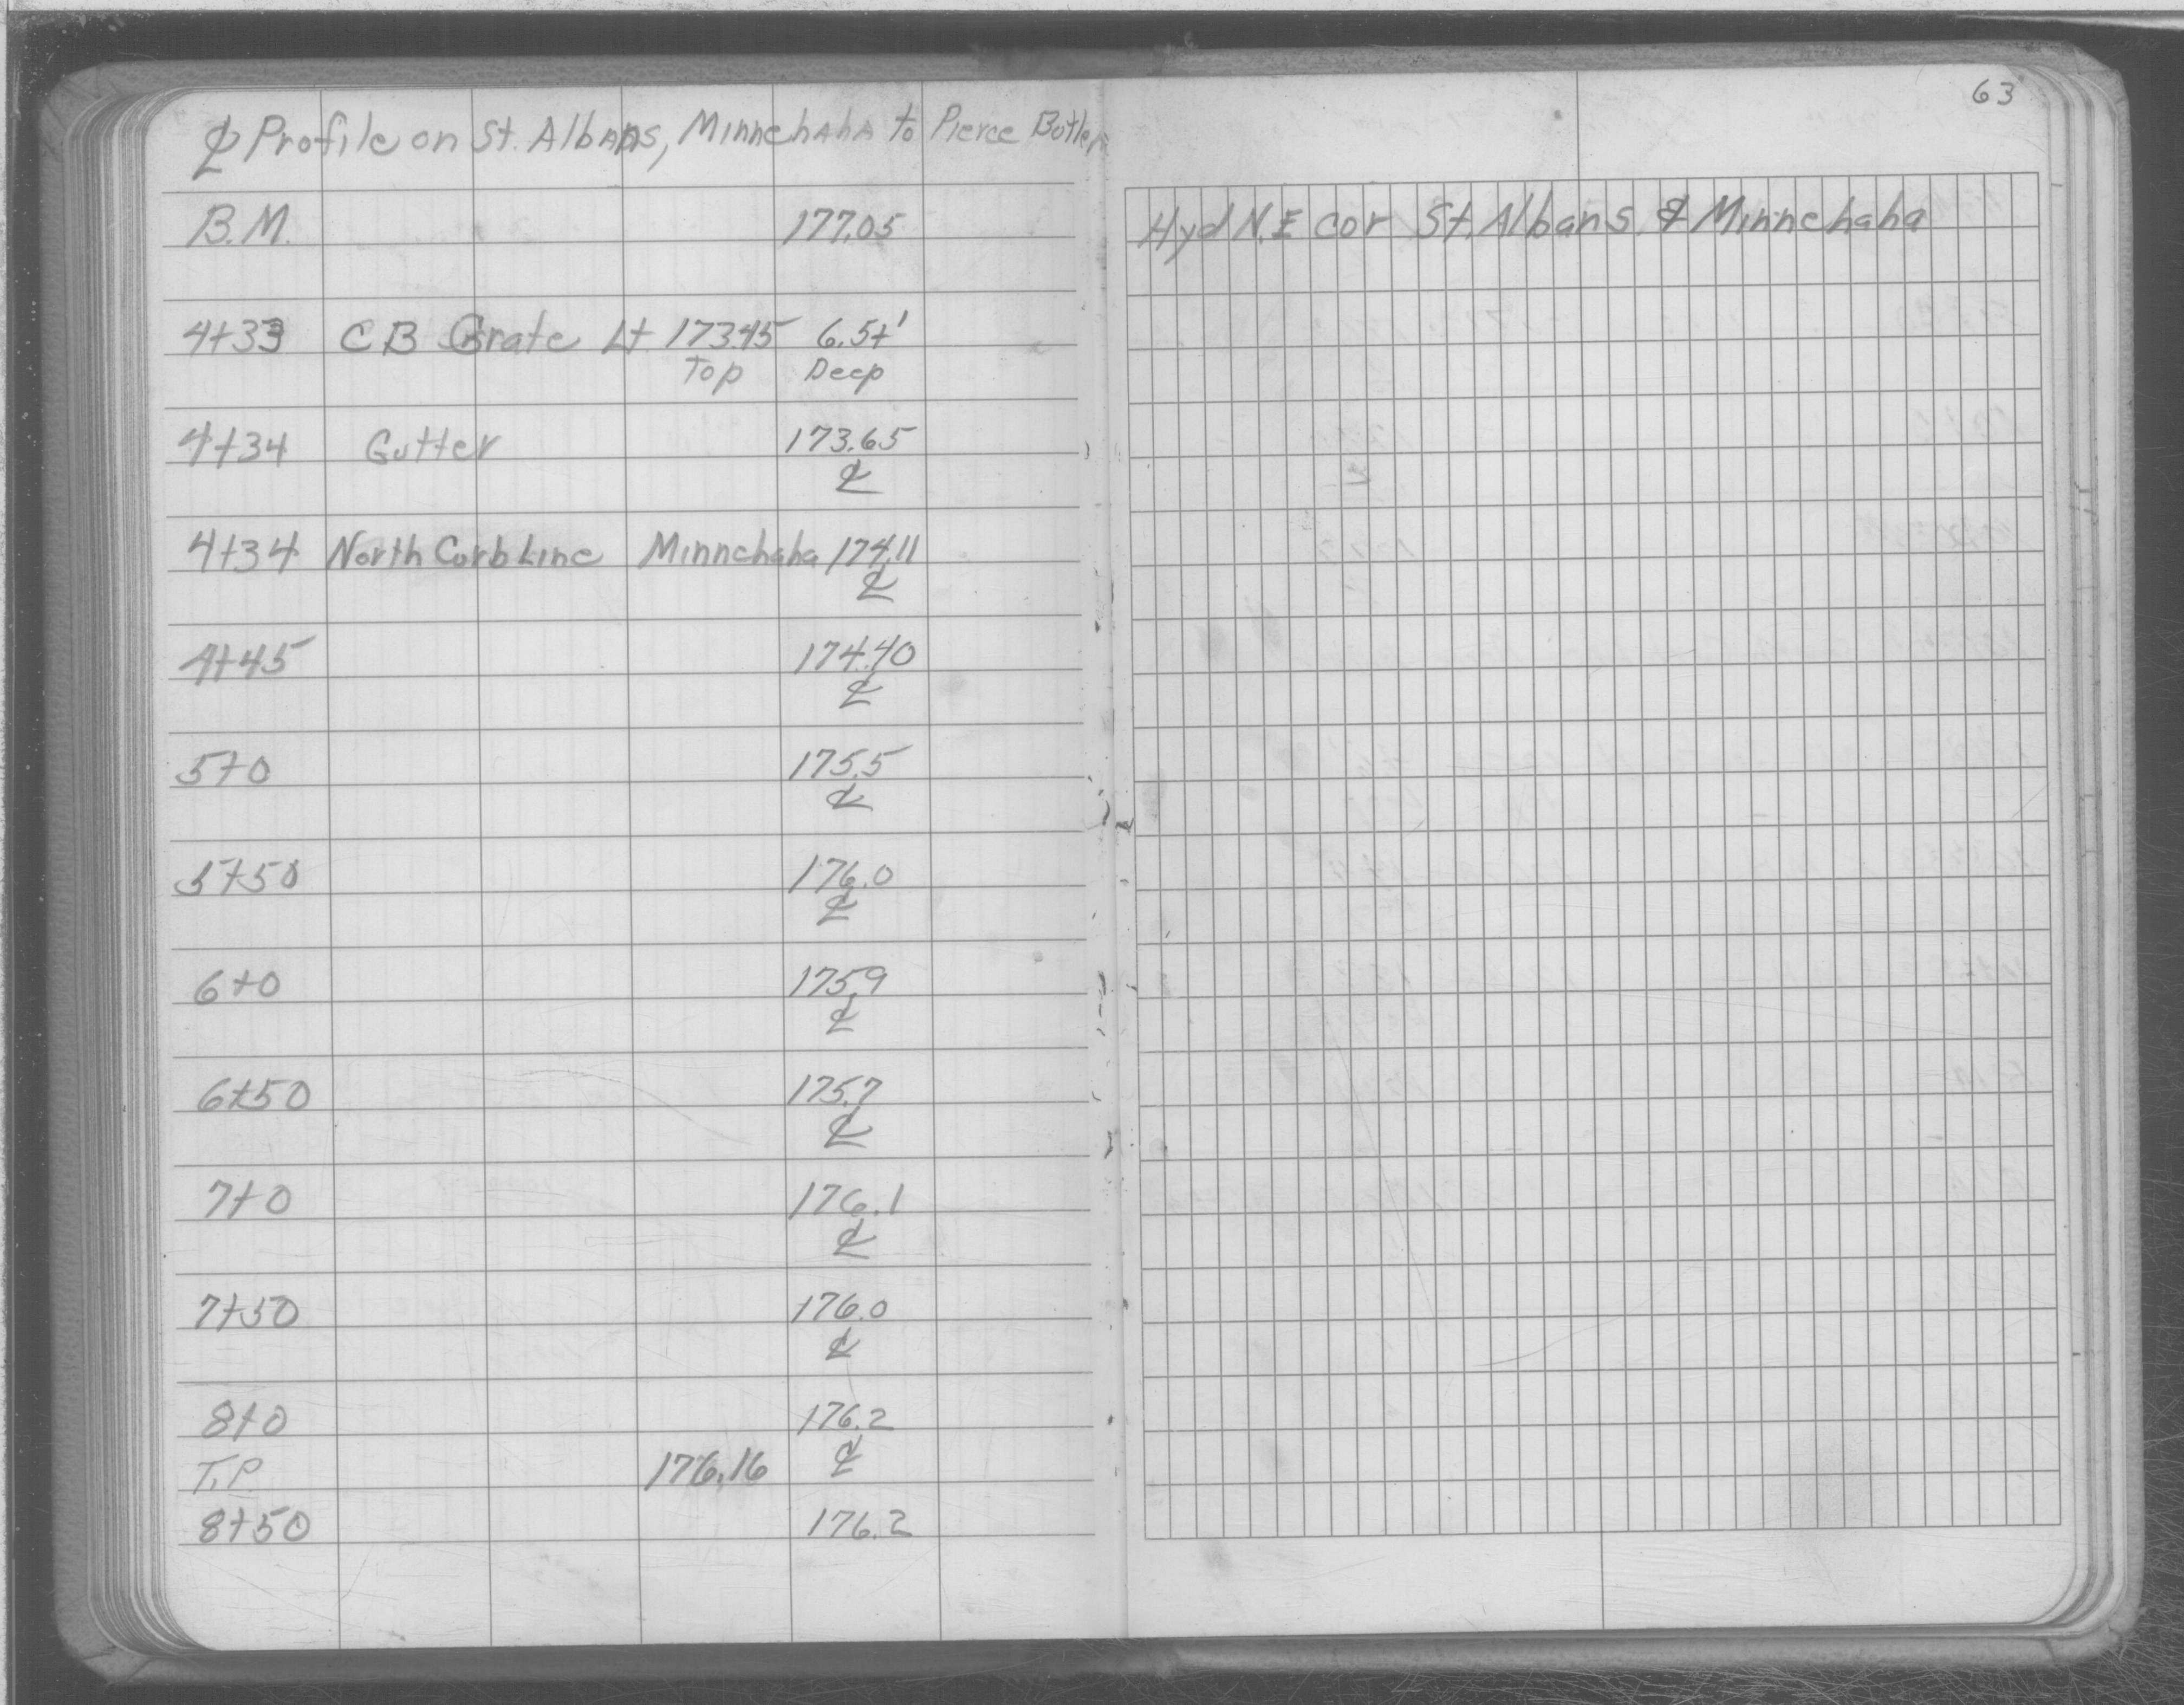 63
℄ Profile on St. Albans, Minnehaha to Pierce Butler
B.M. 177.05 Hyd N.E cor St. Albans & Minnehaha
4+33 CB Grate Lt 173.45 6.5±'
Top Deep
4+34 Gutter 173.65
℄
4+34 North Curb Line Minnehaha 174.11
℄
4+45 174.40
℄
5+0 175.5
℄
5+50 176.0
℄
6+0 175.9
℄
6+50 175.7
℄
7+0 176.1
℄
7+50 176.0
℄
8+0 176.2
T.P. 176.16 ℄
8+50 176.2